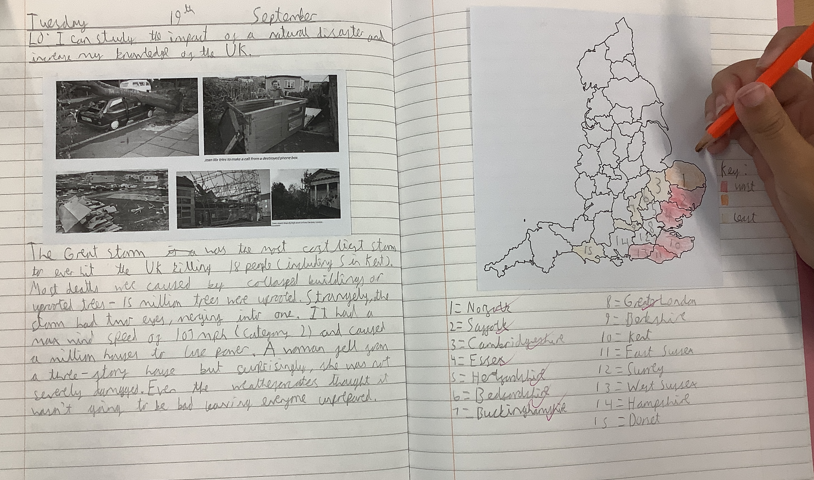 Tuesday 19th September
LO: I can study the impact of a natural disaster and
increase my knowledge of the UK.
The Great storm was the most costliest storm
to ever hit the UK killing 18 people (including 5 in Kent).
Most deaths was caused by collapsed buildings or
uprooted trees - 15 million trees were uprooted. Strangely, the
storm had two eyes, merging into one. It had a
max wind speed of 107 mph (Category 2) and caused
a million houses to lose power. A woman fell from
a three-story house but surprisingly, she was not
severely damaged. Even the thought it
wasn't going to be bad leaving everyone unprepared.
Key:
most
least
1 = Norfolk
2 = Suffolk
3 = Cambridgeshire
4 = Essex
5 =
6 = Bedfordshire
7 = Buckinghamshire
8 = Greater London
9 = Berkshire
10 = Kent
11 = East Sussex
12 = Surrey
13 = West Sussex
14 = Hampshire
15 = Dorset